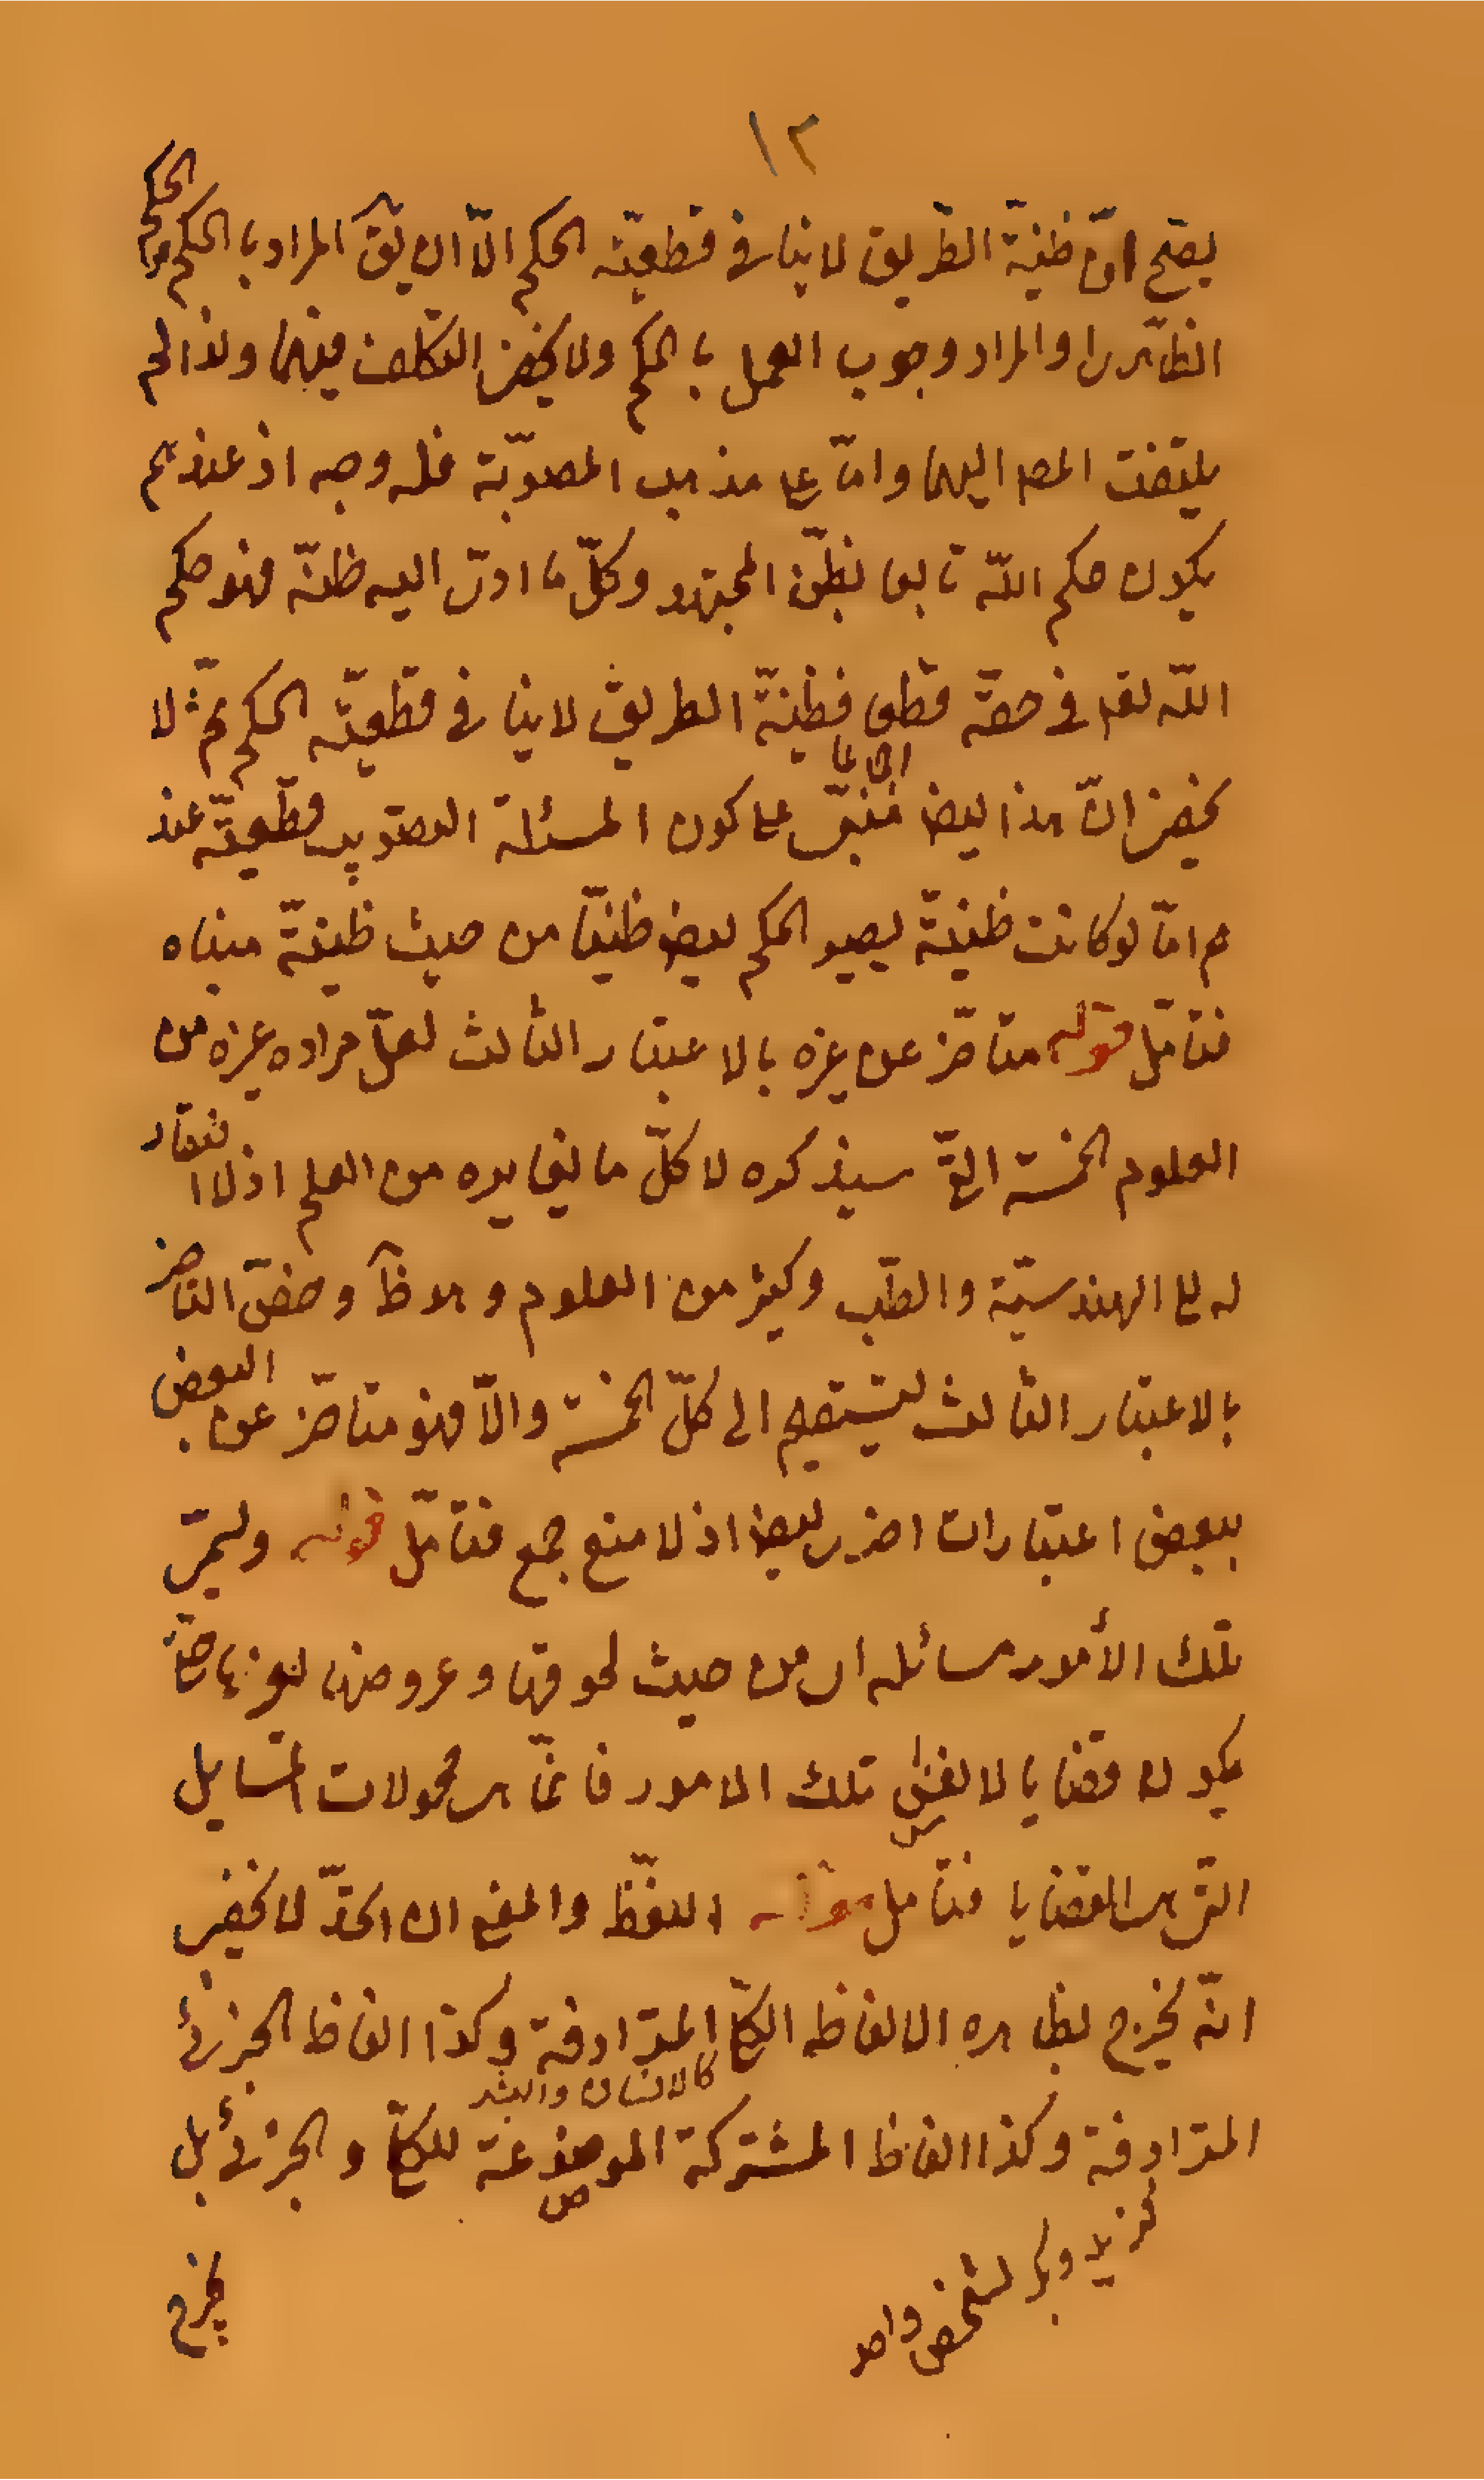 ١٢
يصح انّ ظنيّة الطّريق لا ينافى قطعيّة الحكم الّا ان يقٓ المراد با الحكم الحكم
الظّاهرى او المراد وجوب العمل با لحكم ولا يخفى التكلف فيهما ولذا لم
يلتفت المصه اليهما وامّا على مذهب المصوّبة فله وجه اذ عندهم
يكون حكم اللّه تابعا بظنّ المجتهد وكلّ ما ادى اليه ظنّه فهو حكم
اللّه تعه فى حقّه قطعا فظنيّة الطريق لا ينافى قطعيّة الحكم ثمّ لا
يخفى انّ هذا ايضا مبنىّ على كون المسئلة التصويب قطعيّة عند
هم امّا لو كانت ظنيّة يصير الحكم ايضا ظنيّا من حيث ظنيّة مبناه
فتامّل قوله متاخّر عن غيره بالاعتبار الثالث لعلّ مراده غيره من
العلوم الخمسة الّتى سيذكره لا كلّ ما يغايره من العلم اذ لا افتقار
له على الهندسيّة والطّب وكثير من العلوم وهو ظٓ وخصّ التاخر
بالاعتبار الثالث ليستقيم الى كلّ الخمسة والّا فهو متاخّر عن البعض
ببعض اعتبارات اخرى ايضا اذ لا منع جمع فتامّل قوله وليسمّى
تلك الأمور مسائله اى من حيث لحوقها وعروضها لغيرها حتّى
يكون قضايا لا نفس تلك الامور فانّها هى محولات المسايل
التى هى القضايا فتامل قوله اللفظ والمعنى ان اتحدّ لا يخفى
انّه يخرج بظاهره الالفاظ الكلّى المترادفة وكذا الفاظ الجزئى
كالانسان والبشر
المترادفة وكذا الفاظ المشتركة الموضوعة للكلّى والجزئى بل
كزيد وبكر لشخص واحد
يخرج